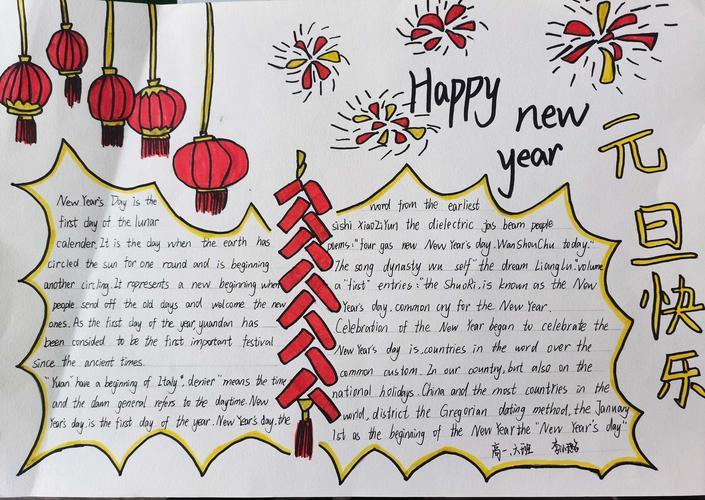 Happy new year
元旦快乐
New Year's Day is the
first day of the lunar
calender. It is the day when the earth has
circled the sun for one round and is beginning
another circling. It represents a new beginning when
people send off the old days and welcome the new
ones. As the first day of the year, yuandan has
been consided to be the first important festival
since the ancient times.
"Yuan" have a beginning of Italy", denier" means the time
and the dawn general refers to the daytime. New
Year's day is the first day of the year. New Year's day. the
word from the earliest
sishi XiaoZiYun the dielectric jas beam people
plems:" four gas new New Year's day. WanShouChu today."
The song dynasty wu self "the dream LiangLu."volume
a "first" entries:" the ShuoRi. is known as the New
Year's day. common cry for the New Year.
Celebration of the New Year began to celebrate the
New Year's day is.countries in the word over the
common custom. In our country, but also on the
national holidays. China and the most countries in the
world, district the Gregorian dating method, the January
1st as the beginning of the New Year.the "New Year's day"
高一.六班